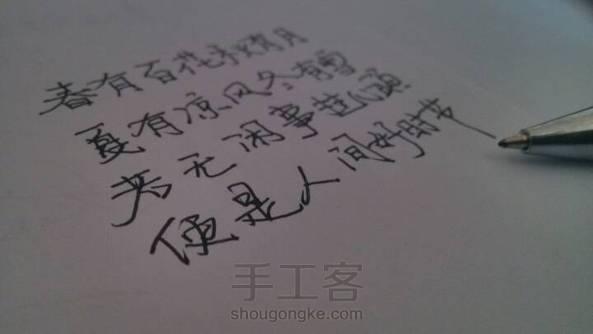 春有百花秋有月
夏有凉风冬有雪
若无闲事挂心头
便是人间好时节
手工客
shougongke.com